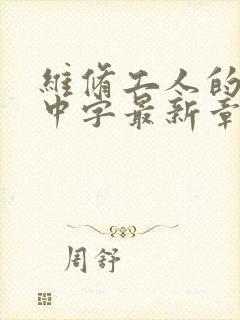 維脩工人的
中字最新章
周舒